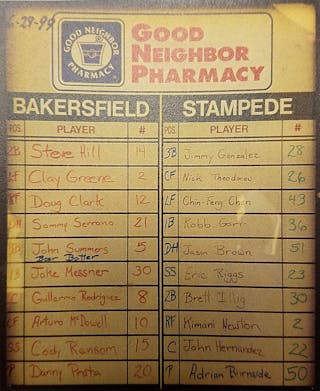 6-29-99
GOOD NEIGHBOR PHARMACY
GOOD
NEIGHBOR
PHARMACY
BAKERSFIELD STAMPEDE
POS. PLAYER # POS. PLAYER #
2B Steve Hill 14 3B Jimmy Gonzalez 28
LF Clay Greene 2 CF Nick Theodorou 26
Doug Clark 12 LF Chin-Feng Chen 43
DH Sammy Serrano 21 1B Robb Gorr 36
John Summers 5 DH Jason Brown 51
Beer Batter
Jake Messner 30 SS Eric Riggs 23
C Guillermo Rodriguez 8 2B Brett Illig 30
CF Arturo McDowell 10 RF Kimani Newton 2
SS Cody Ransom 15 C John Hernandez 22
P Danny 20 P Adrian Burnside 50